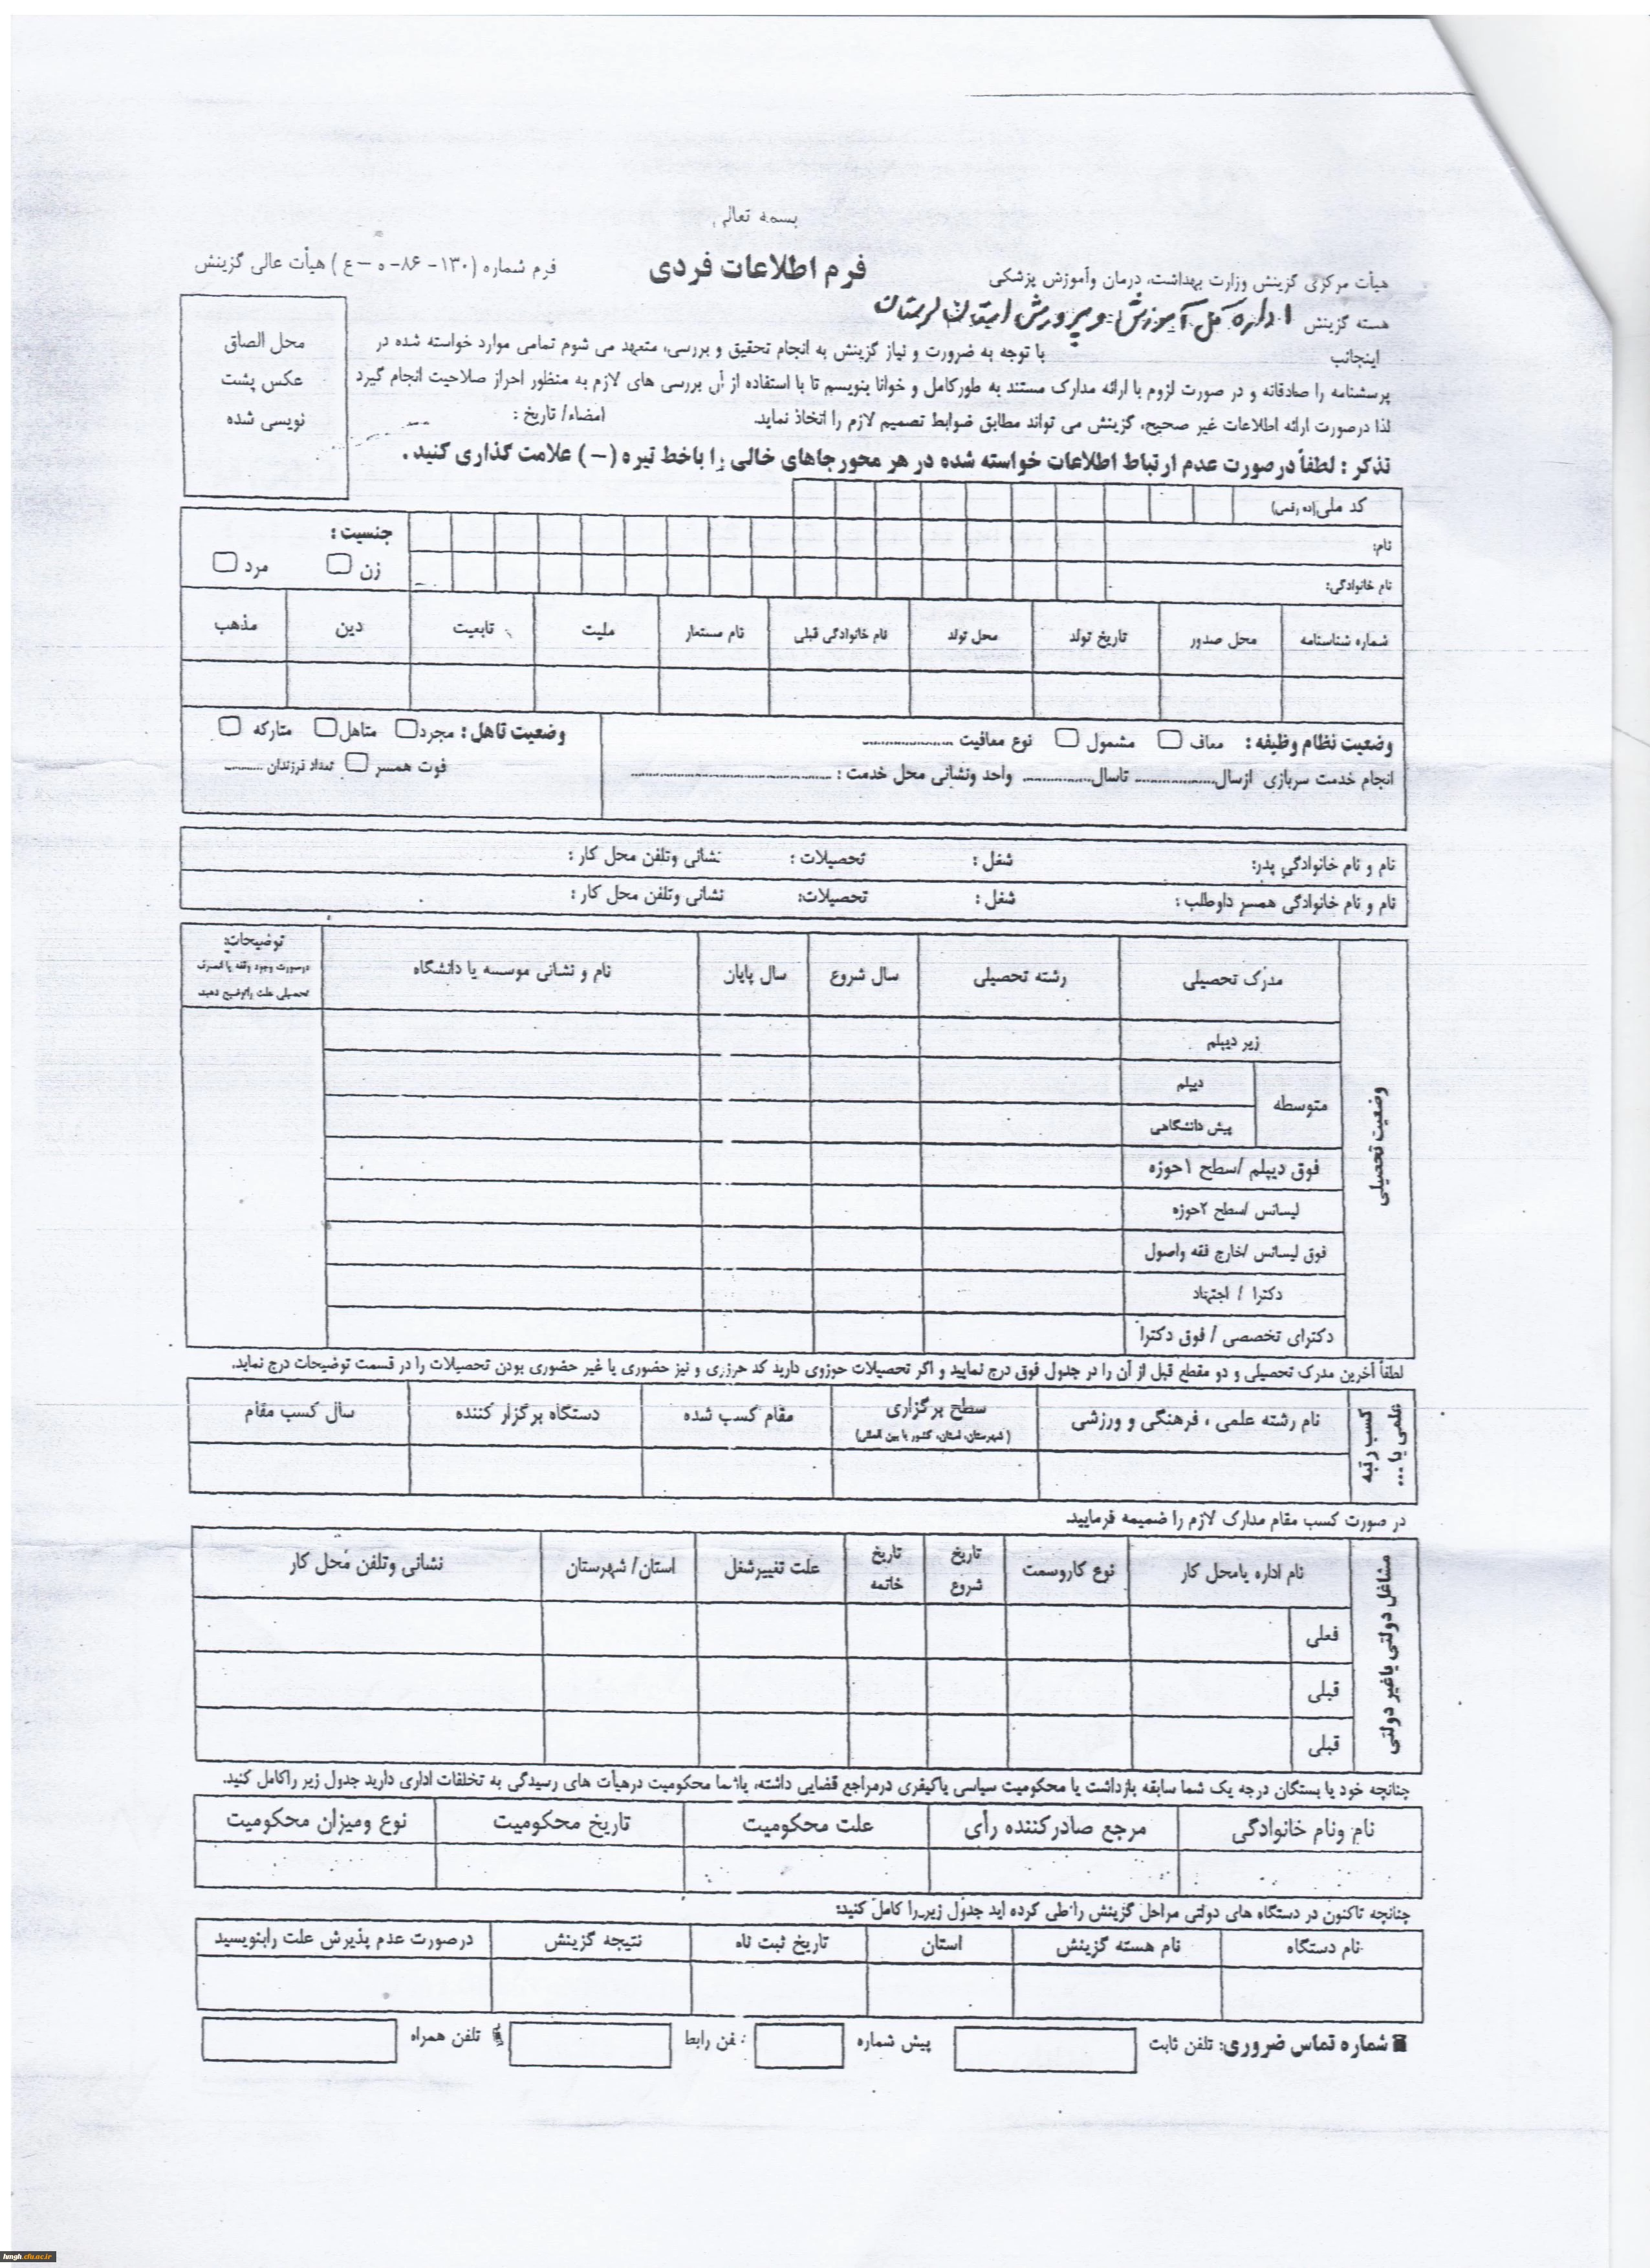 بسمه تعالی
فرم اطلاعات فردی
فرم شماره (۱۳۰- ۸۶- ه – ع ) هیأت عالی گزینش
هیأت مرکزی گزینش وزارت بهداشت، درمان وآموزش پزشکی
هسته گزینش اداره کل آموزش و پرورش استان لرستان
محل الصاق
عکس پشت
نویسی شده
اینجانب با توجه به ضرورت و نیاز گزینش به انجام تحقیق و بررسی، متعهد می شوم تمامی موارد خواسته شده در
پرسشنامه را صادقانه و در صورت لزوم با ارائه مدارک مستند به طورکامل و خوانا بنویسم تا با استفاده از آن بررسی های لازم به منظور احراز صلاحیت انجام گیرد
لذا درصورت ارائه اطلاعات غیر صحیح، گزینش می تواند مطابق ضوابط تصمیم لازم را اتخاذ نماید. امضاء/ تاریخ :
تذکر : لطفاً درصورت عدم ارتباط اطلاعات خواسته شده در هر محور جاهای خالی را باخط تیره (–) علامت گذاری کنید .
کد ملی(ده رقمی)
نام:
نام خانوادگی:
جنسیت :
زن مرد
شماره شناسنامه محل صدور تاریخ تولد محل تولد نام خانوادگی قبلی نام مستعار ملیت تابعیت دین مذهب
وضعیت نظام وظیفه : معاف مشمول نوع معافیت ....................
انجام خدمت سربازی ازسال.................. تاسال............... واحد ونشانی محل خدمت : ..........................................
وضعیت تاهل : مجرد متاهل متارکه
فوت همسر تعداد فرزندان .........
نام و نام خانوادگی پدر: شغل : تحصیلات : نشانی وتلفن محل کار :
نام و نام خانوادگی همسر داوطلب : شغل : تحصیلات: نشانی وتلفن محل کار :
وضعیت تحصیلی
مدرک تحصیلی رشته تحصیلی سال شروع سال پایان نام و نشانی موسسه یا دانشگاه
توضیحات:
درصورت وجود وقفه یا انصراف
تحصیلی علت راتوضیح دهید
زیر دیپلم
متوسطه
دیپلم
پیش دانشگاهی
فوق دیپلم /سطح ۱حوزه
لیسانس /سطح ۲حوزه
فوق لیسانس /خارج فقه واصول
دکترا / اجتهاد
دکترای تخصصی / فوق دکترا
لطفاً آخرین مدرک تحصیلی و دو مقطع قبل از آن را در جدول فوق درج نمایید و اگر تحصیلات حوزوی دارید کد حوزوی و نیز حضوری یا غیر حضوری بودن تحصیلات را در قسمت توضیحات درج نماید.
کسب رتبه
علمی یا ...
نام رشته علمی ، فرهنگی و ورزشی سطح برگزاری مقام کسب شده دستگاه برگزار کننده سال کسب مقام
(شهرستان، استان، کشور یا بین المللی)
در صورت کسب مقام مدارک لازم را ضمیمه فرمایید.
مشاغل دولتی یاغیر دولتی
نام اداره یامحل کار نوع کاروسمت تاریخ شروع تاریخ خاتمه علت تغییرشغل استان/ شهرستان نشانی وتلفن محل کار
فعلی
قبلی
قبلی
چنانچه خود یا بستگان درجه یک شما سابقه بازداشت یا محکومیت سیاسی یاکیفری درمراجع قضایی داشته، یاشما محکومیت درهیأت های رسیدگی به تخلفات اداری دارید جدول زیر راکامل کنید.
نام ونام خانوادگی مرجع صادرکننده رأی علت محکومیت تاریخ محکومیت نوع ومیزان محکومیت
چنانچه تاکنون در دستگاه های دولتی مراحل گزینش را طی کرده اید جدول زیر را کامل کنید:
نام دستگاه نام هسته گزینش استان تاریخ ثبت نام نتیجه گزینش درصورت عدم پذیرش علت رابنویسید
شماره تماس ضروری: تلفن ثابت پیش شماره فن رابط تلفن همراه
hmgh.cfu.ac.ir